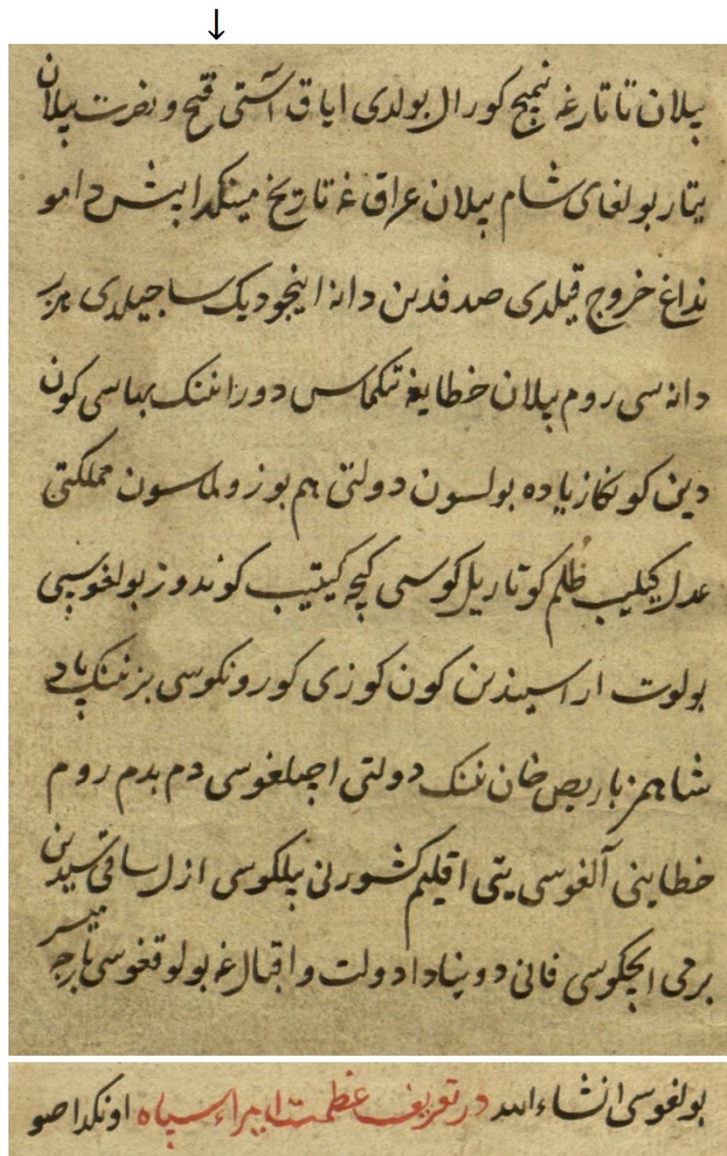 بیلان تاتارغه نیمیچ کورال بولدی ایاق آستی فتح و نصرت بیلان
یتار بولغای شام بیلان عراق غه تاریخ مینکدا بیش دا مو
نداغ خروج قیلدی صدفدین دانه اینجودیک ساجیلدی هر بر
دانه سی روم بیلان خطایغه تکماس دورانینک بهاسی کون
دین کونکا زیاده بولسون دولتی هم بوزولماسون مملکتی
عدل کیلیب ظلم کوتاریلکوسی کیچه کیتیب کوندوز بولغوسی
بولوت اراسیندین کون کوزی کورونکوسی بزننک پاد
شاهمز باریص خان ننک دولتی اچیلغوسی دم بدم روم
خطاینی آلغوسی یتی اقلیم کشورنی بیلکوسی ازل ساقی سیدین
برمی ایچکوسی فانی دونیادا دولت و اقبال غه بولوقغوسی بارچه میسر
بولغوسی انشاء الله در تعریف عظمت امراء سپاه اونکدا صو